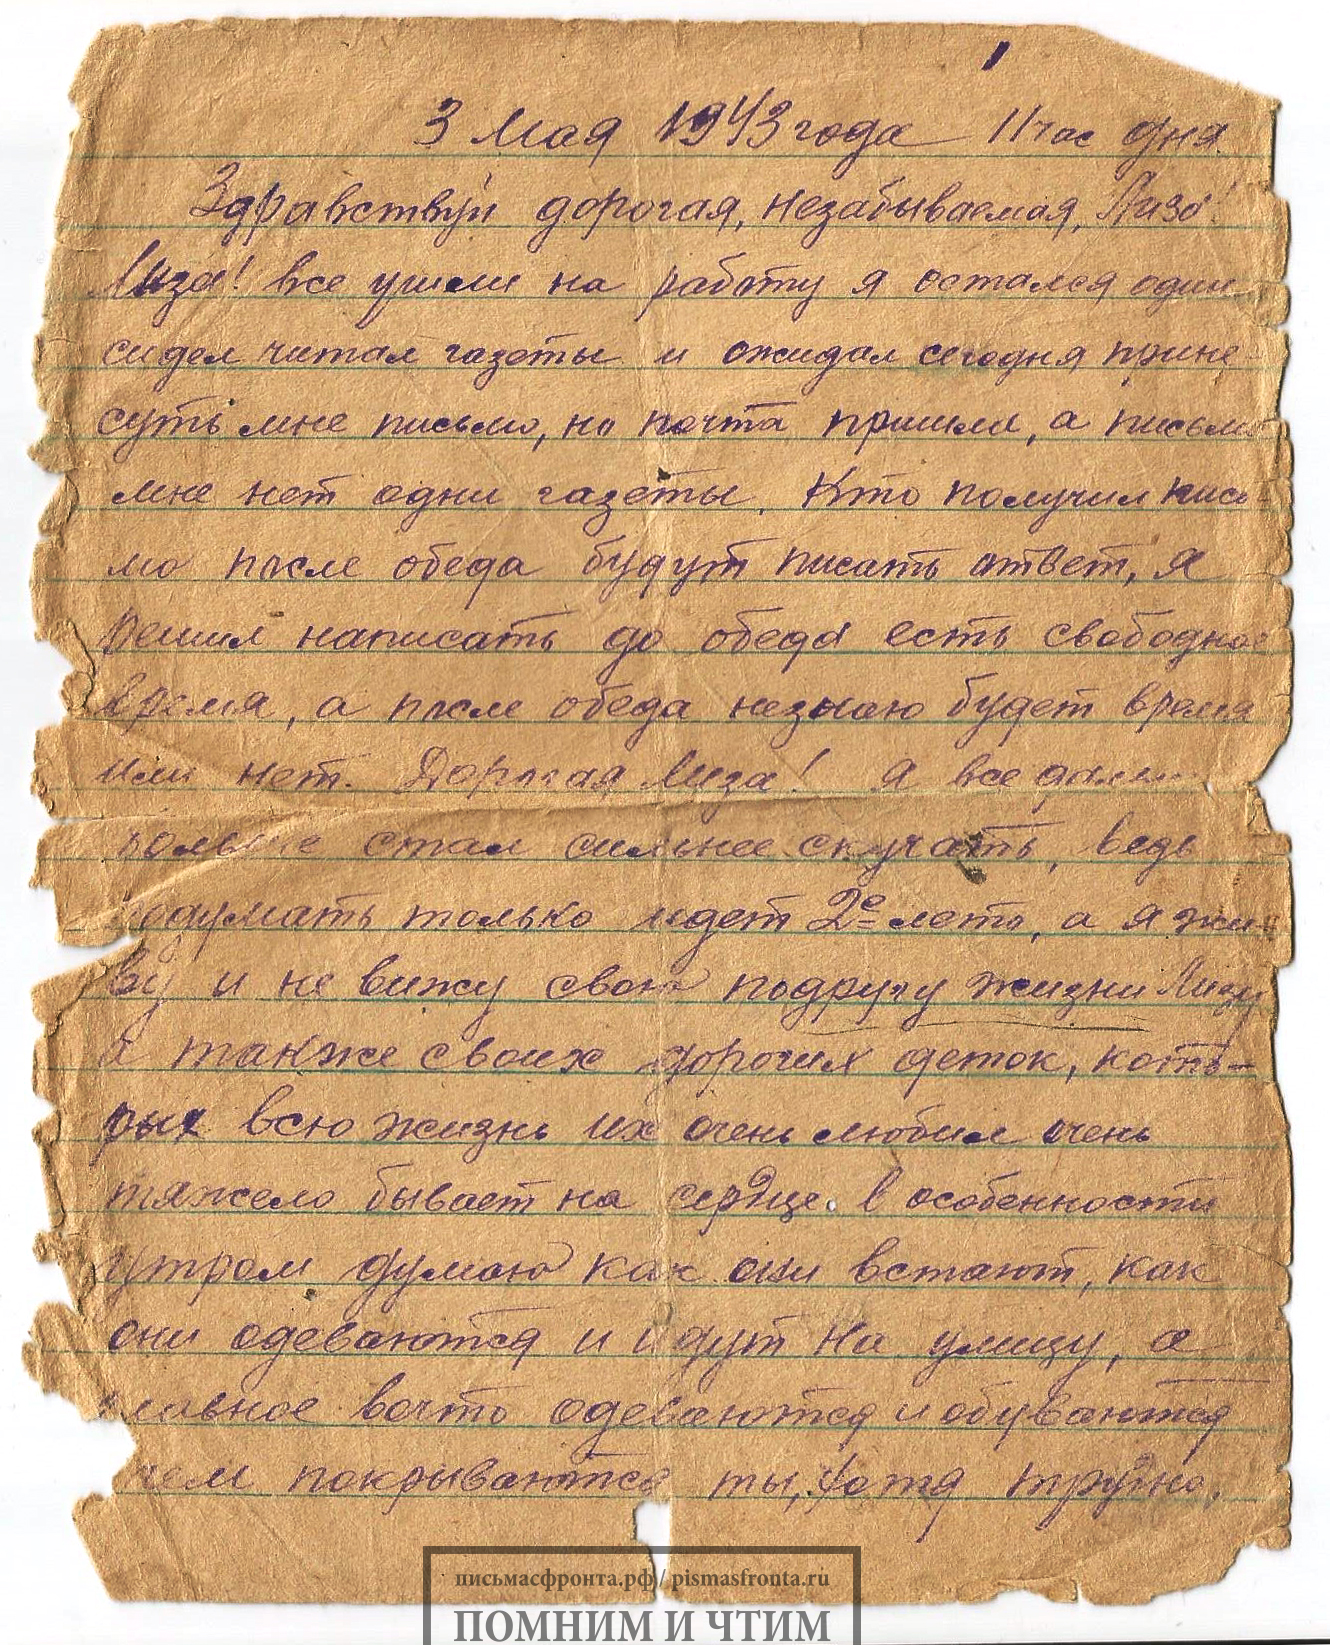 1
3 Мая 1943 года 11 час дня
Здравствуй дорогая, незабываемая, Лиза!
Лиза! все ушли на работу я остался один
сидел читал газеты и ожидал сегодня прине-
суть мне письмо, но почта пришла, а письма
мне нет одни газеты. Кто получил пись-
мо после обеда будут писать ответ, я
решил написать до обеда есть свободное
время, а после обеда незнаю будет время
или нет. Дорогая Лиза! я все
больше стал сильнее скучать, ведь
подумать только идет 2е лето, а я жи-
ву и не вижу свою подругу жизни Лизу
а также своих дорогих деток, кото-
рых всю жизнь их очень любил очень
тяжело бывает на сердце. в особенности
утром думаю как они встают, как
они одеваются и идут на улицу, а
главное вочто одеваются и обуваются
чем покрываются ты, хотя трудно,
письмасфронта.рф / pismasfronta.ru
ПОМНИМ И ЧТИМ